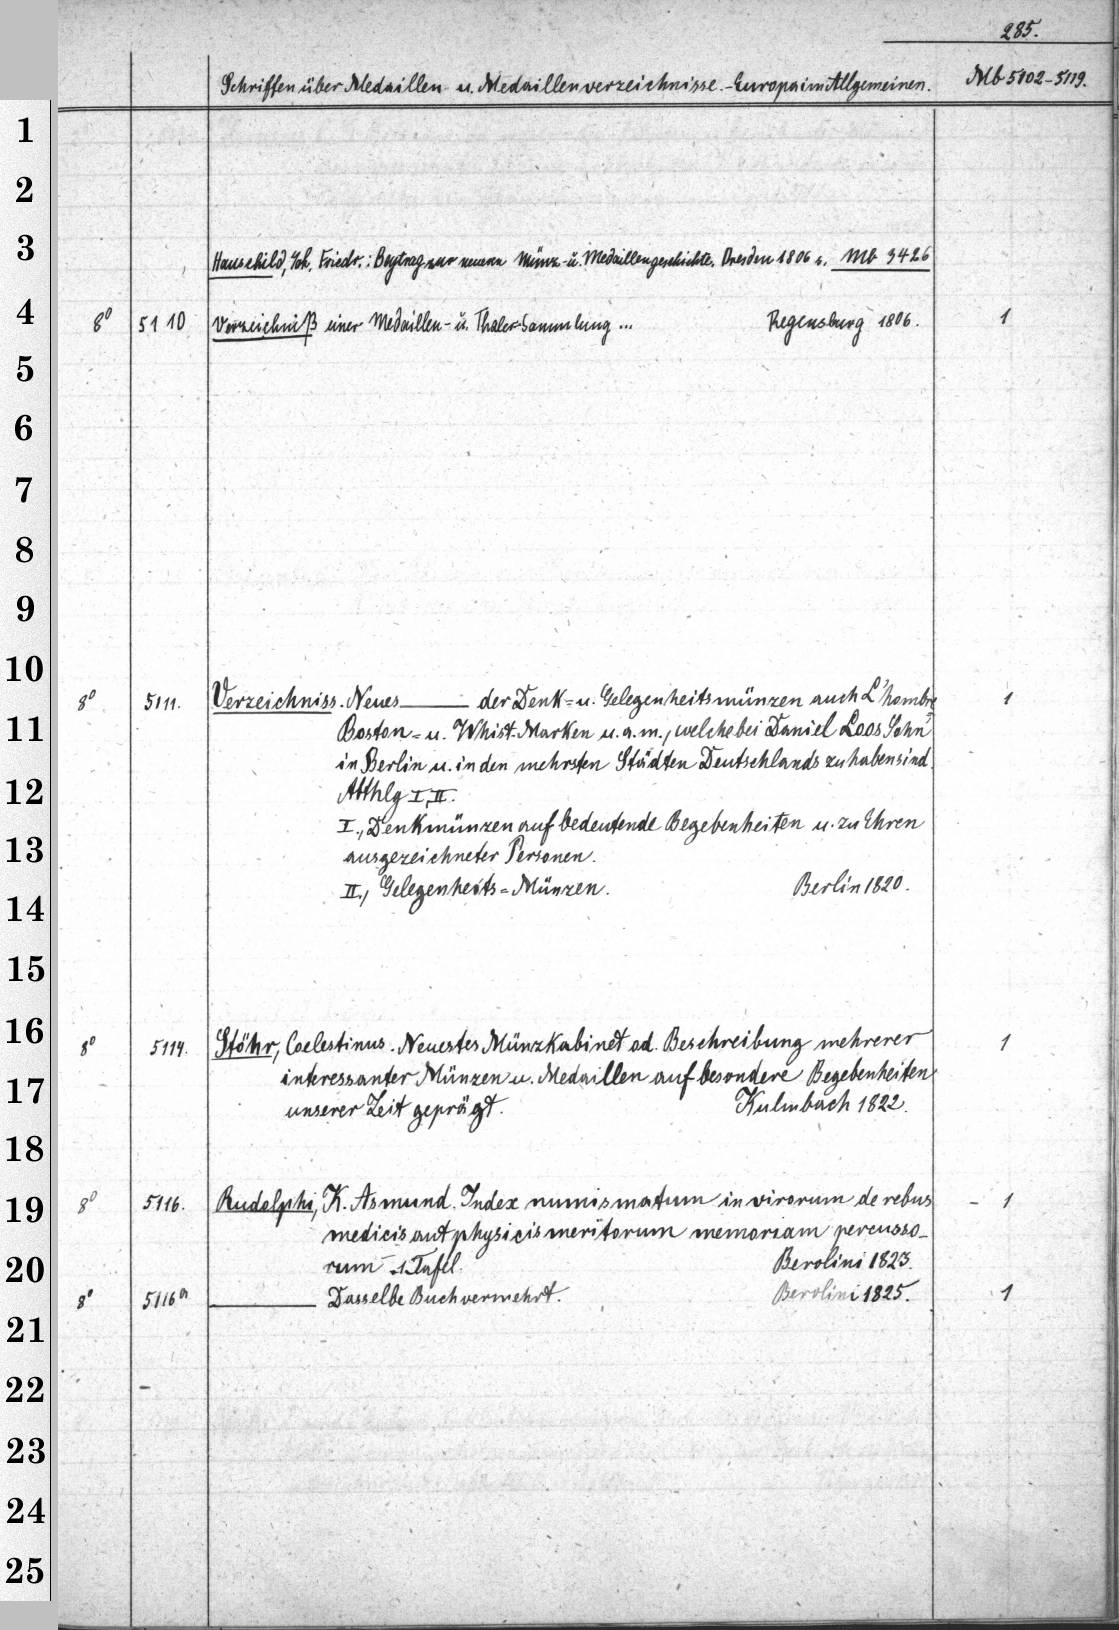 285.
Schriften über Medaillen- u. Medaillenverzeichnisse.-Europa im Allgemeinen. Mb 5102-5119.
1
2
3
Hauschild, Joh. Friedr.: Beytrag zur neuern Münz- ü. Medaillengeschichte. Dresden 1806 s. Mb 3426
4
8° 5110 Verzeichniß einer Medaillen- ü. Thaler-Sammlung ... Regensburg 1806. 1
5
6
7
8
9
10
8° 5111. Verzeichniss. Neues ——— der Denk= u. Gelegenheitsmünzen auch L'hombre 1
11
Boston= u. Whist-Marken u.a.m., welche bei Daniel Loos Sohn
in Berlin u. in den mehrsten Städten Deutschlands zu haben sind.
12
Abthlg I, II.
I., Denkmünzen auf bedeutende Begebenheiten u. zu Ehren
13
ausgezeichneter Personen.
II., Gelegenheits=Münzen. Berlin 1820.
14
15
16
8° 5114. Stöhr, Coelestinus. Neuestes Münzkabinet od. Beschreibung mehrerer 1
17
interessanter Münzen u. Medaillen auf besondere Begebenheiten
unserer Zeit geprägt. Kulmbach 1822.
18
19
8° 5116. Rudolphi, K. Asmund. Index numismatum in virorum de rebus - 1
medicis aut physicis meritorum memoriam percusso-
20
rum 1 Tafel. Berolini 1823.
8° 5116a ——— Dasselbe Buch vermehrt. Berolini 1825. 1
21
22
23
24
25